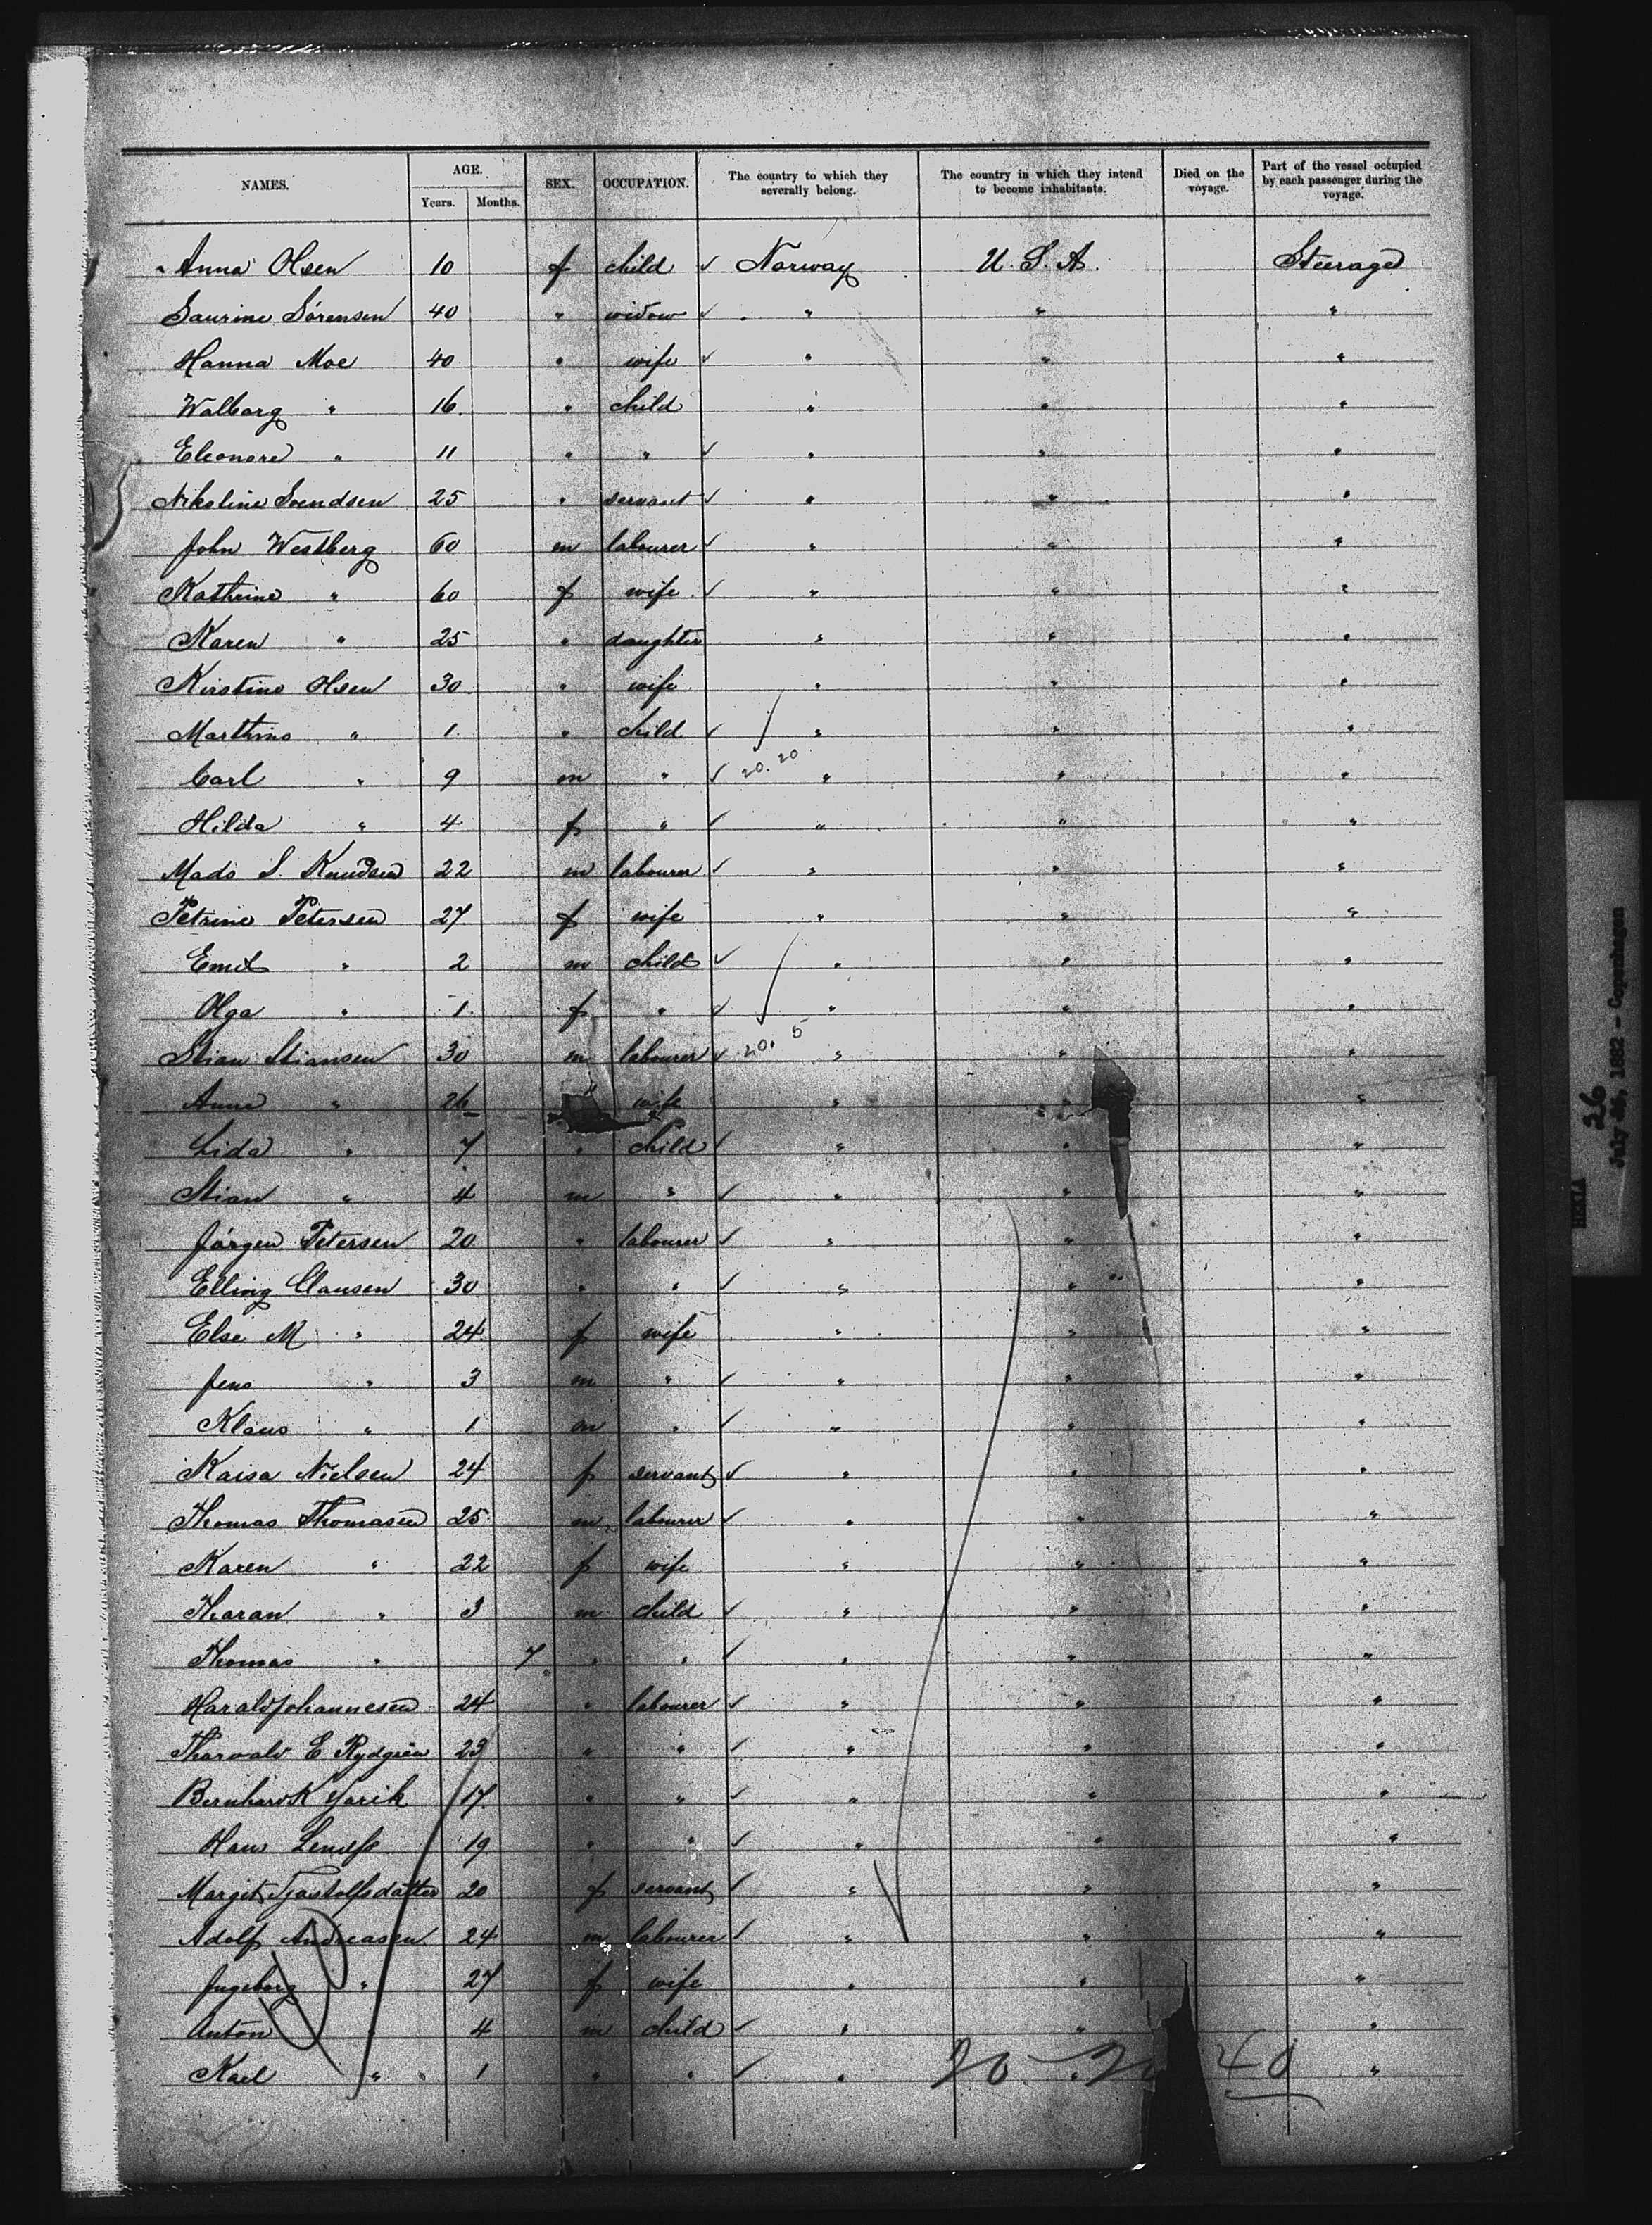 NAMES. AGE. SEX. OCCUPATION. The country to which they severally belong. The country in which they intend to become inhabitants. Died on the voyage. Part of the vessel occupied by each passenger during the voyage.
Years. Months.
Anna Olsen 10 f child ✓ Norway U. S. A. Steerage
Laurine Sörensen 40 " widow ✓ " " "
Hanna Moe 40 " wife ✓ " " "
Walborg " 16 " child " " "
Eleonore " 11 " " ✓ " " "
Nikoline Svendsen 25 " servant ✓ " " "
John Westberg 60 m labourer ✓ " " "
Kathrine " 60 f wife ✓ " " "
Karen " 25 " daughter " " "
Kirstine Olsen 30 " wife " " "
Marthins " 1 " child ✓ " " "
Carl " 9 m " ✓ 20. 20 " " "
Hilda " 4 f " ✓ " " "
Mads S. Knudsen 22 m labourer ✓ " " "
Petrine Petersen 27 f wife " " "
Emil " 2 m child ✓ " " "
Olga " 1 f " ✓ " " "
Stian Stiansen 30 m labourer ✓ 20. 5 " " "
Anne " 26 wife " " "
Lida " 7 " child ✓ " " "
Stian " 4 m " ✓ " " "
Jörgen Petersen 20 " labourer ✓ " " "
Elling Clausen 30 " " ✓ " " "
Else M " 24 f wife " " "
Jens " 3 m " ✓ " " "
Klaus " 1 m " ✓ " " "
Kaisa Nielsen 24 f servant ✓ " " "
Thomas Thomasen 25 m labourer ✓ " " "
Karen " 22 f wife " " "
" 3 m child ✓ " " "
Thomas " 7 " " ✓ " " "
Harald Johannesen 24 " labourer ✓ " " "
Thorvald E 23 " " ✓ " " "
Bernhard K 17 " " ✓ " " "
19 " " ✓ " " "
Margit 20 f servant ✓ " " "
Adolf Andreasen 24 m labourer ✓ " " "
Ingeborg " 27 f wife " " "
Anton " 4 m child ✓ " " "
Karl " 1 " " ✓ " " "
20 40
HEKLA
26
July 26, 1882 - Copenhagen